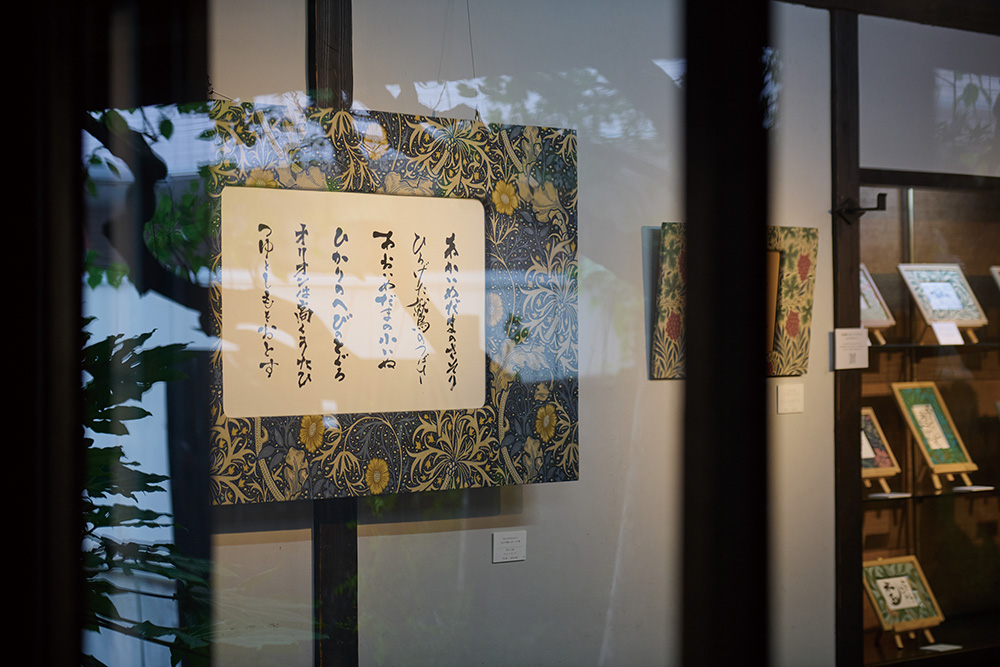 あかいめだまのさそり
ひろげた鷲のつばさ
あおいめだまの小いぬ
ひかりのへびのとぐろ
オリオンは高くうたひ
つゆとしもとをおとす